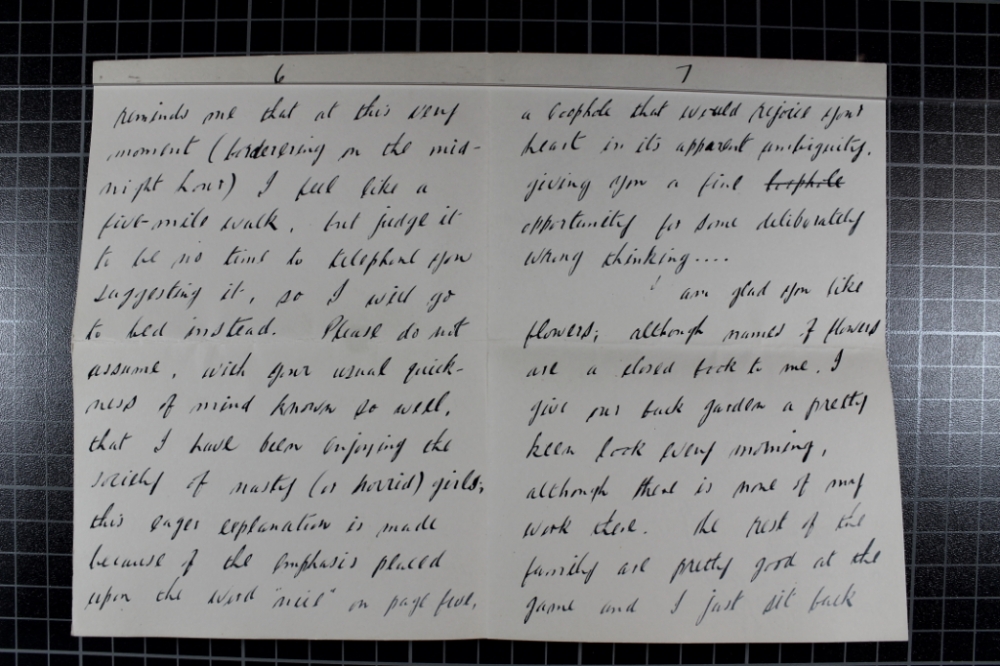 6
reminds me that at this very
moment (borderering on the mid-
night hour) I feel like a
five-mile walk, but judge it
to be no time to telephone you
suggesting it, so I will go
to bed instead. Please do not
assume, with your usual quick-
ness of mind known so well,
that I have been enjoying the
society of nasty (or horrid) girls;
this eager explanation is made
because of the emphasis placed
upon the word "nice" on page five,
7
a loophole that would rejoice your
heart in its apparent ambiguity,
giving you a fine loophole
opportunity for some deliberately
wrong thinking....
I am glad you like
flowers; although names of flowers
are a closed book to me, I
give our back garden a pretty
keen look every morning,
although there is none of my
work there. The rest of the
family are pretty good at the
game and I just sit back